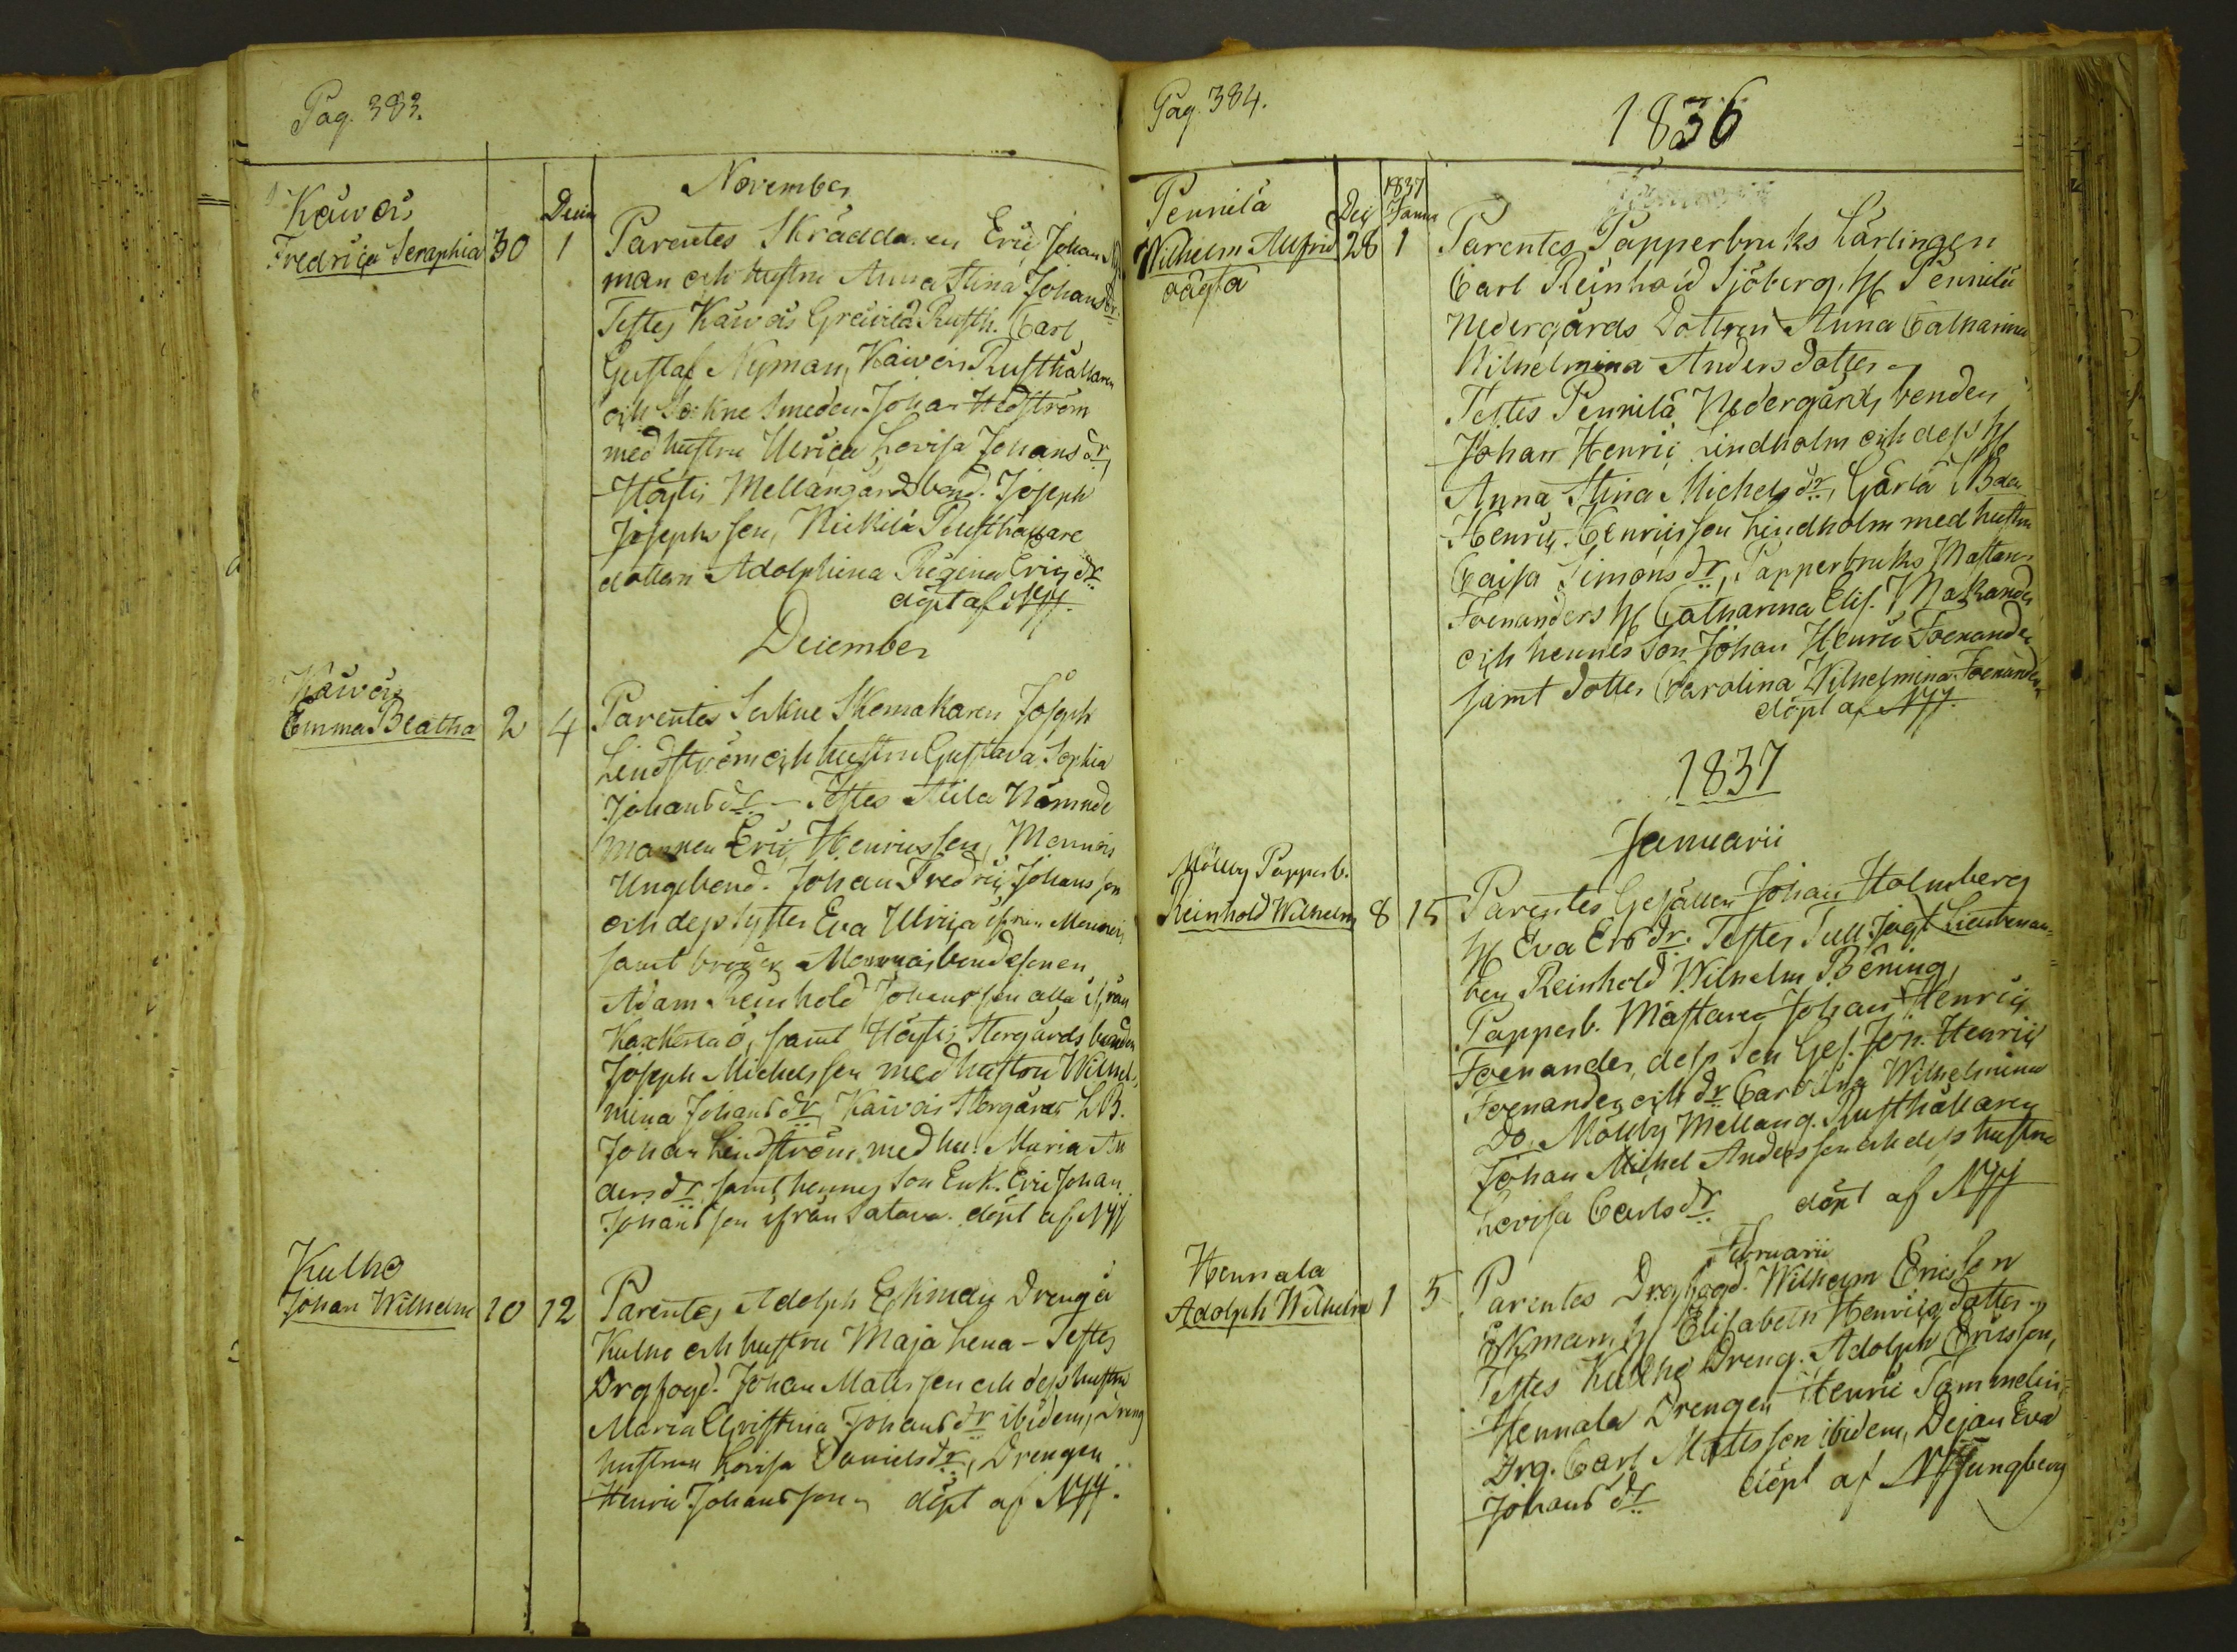 Pag. 383.
November
Kaivois
Decem
Fredrica Seraphia 30 1 Parentes Skräddaren Eric Johan Ny
man och hustru Anna Stina Johansdr
Testes Kaivois Greivilä Rusth. Carl
Gustaf Nyman, Kaivois Rusthållaren
och Sokne Smeden Johan Hedström
med hustru Ulrica Lovisa Johansdr,
Höytis Mellangårds bond. Joseph
Josephsson, Nickilä Rusthållare
dottern Adolphina Regina Ericsdr
döpt af NHj.
December
Kaivois
Emma Beatha 2 4 Parentes Sokne Skomakaren Joseph
Lindström och hustru Gustava Sophia
Johansdr - Testes Nämnde
mannen Eric Henricsson, Monnois
Unge bond. Johan Fredric Johansson
och dess syster Eva Ulrica ifrån Monnois
samt broder Monnois bondesonen
Adam Reinhold Johansson alla ifrån
Kaxkerta ö, samt Höytis Storgårds bonden
Joseph Michelsson med hustru Wilhel-
mina Johansdr Kaivois Storgårds LB.
Johan Lindström med hu. Maria An
dersdr samt hennes Son Enk. Eric Johan
Johansson ifrån Satava. döpt af NHj
Kulho
Johan Wilhelm 10 12 Parentes Adolph Ekman Dreng å
Kulho och hustru Maja Lena - Testes
Drgfogd. Johan Matsson och dess hustru
Maria Christina Johansdr ibidem, Dreng
hustrun Lovisa Danielsdr, Drengen
Henric Johansson döpt af NHj.
Pag. 384.
1836
Pennilä Dec 1837 Janua
Wilhelm Alfrid 28 1 Parentes Papperbruks Lärlingen
oägta
Carl Reinhold Sjöberg, H. Pennilä
Nedergårds Dottren Anna Catharina
Wilhelmina Andersdotter
Testes Pennilä Nedergårds bonden
Johan Henric Lindholm och dess H
Anna Stina Michelsdr,
Henric Henricsson Lindholm med hustru
Caisa Simonsdr, Papperbruks Mästar
Foenanders H Catharina Elis.
och hennes Son Johan Henric Foenander
samt dotter Carolina Wilhelmina Foenander
döpt af NHj.
1837
Januarii
Möllby Papperb.
Reinhold Wilhelm 8 15 Parentes Gesällen Johan Holmberg
H Eva Ersdr. Testes Tull Jagt Lieutenan-
ten Reinhold Wilhelm Bening,
Papperb. Mästaren Johan Henric
Foenander, dess Son Ges. Joh. Henric
Foenander, och dr Carolina Wilhelmina
do, Möllby Mellang. Rusthållaren
Johan Michel Andersson och dess hustru
Lovisa Carlsdr döpt af NHj
Februarii
Hennala
Adolph Wilhelm 1 5 Parentes Drgfogd. Wilhelm Ericsson
Ekman, H Elisabeth Henricsdotter
Testes Kulho Dreng. Adolph Ericsson,
Hennala Drengen Henric Tammelin,
Drg. Carl Matsson ibidem, Dejan Eva
Johansdr döpt af NHjungberg